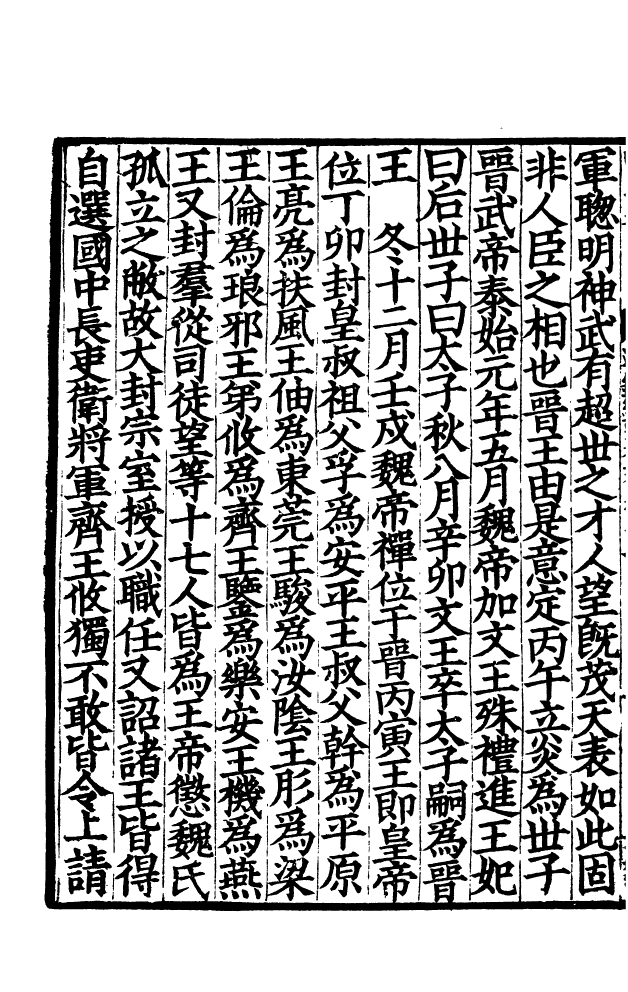 軍聰明神武有超世之才人望旣茂天表如此固
非人臣之相也晉王由是意定丙午立炎為世子
晉武帝泰始元年五月魏帝加文王殊禮進王妃
曰后世子曰太子秋八月辛卯文王卒太子嗣為晉
王　冬十二月壬戌魏帝禪位于晉丙寅王即皇帝
位丁卯封皇叔祖父孚為安平王叔父幹為平原
王亮為扶風王伷為東莞王駿為汝陰王肜為梁
王倫為琅邪王弟攸為齊王鑒為樂安王機為燕
王又封羣從司徒望等十七人皆為王帝懲魏氏
孤立之敝故大封宗室授以職任又詔諸王皆得
自選國中長吏衛將軍齊王攸獨不敢皆令上請